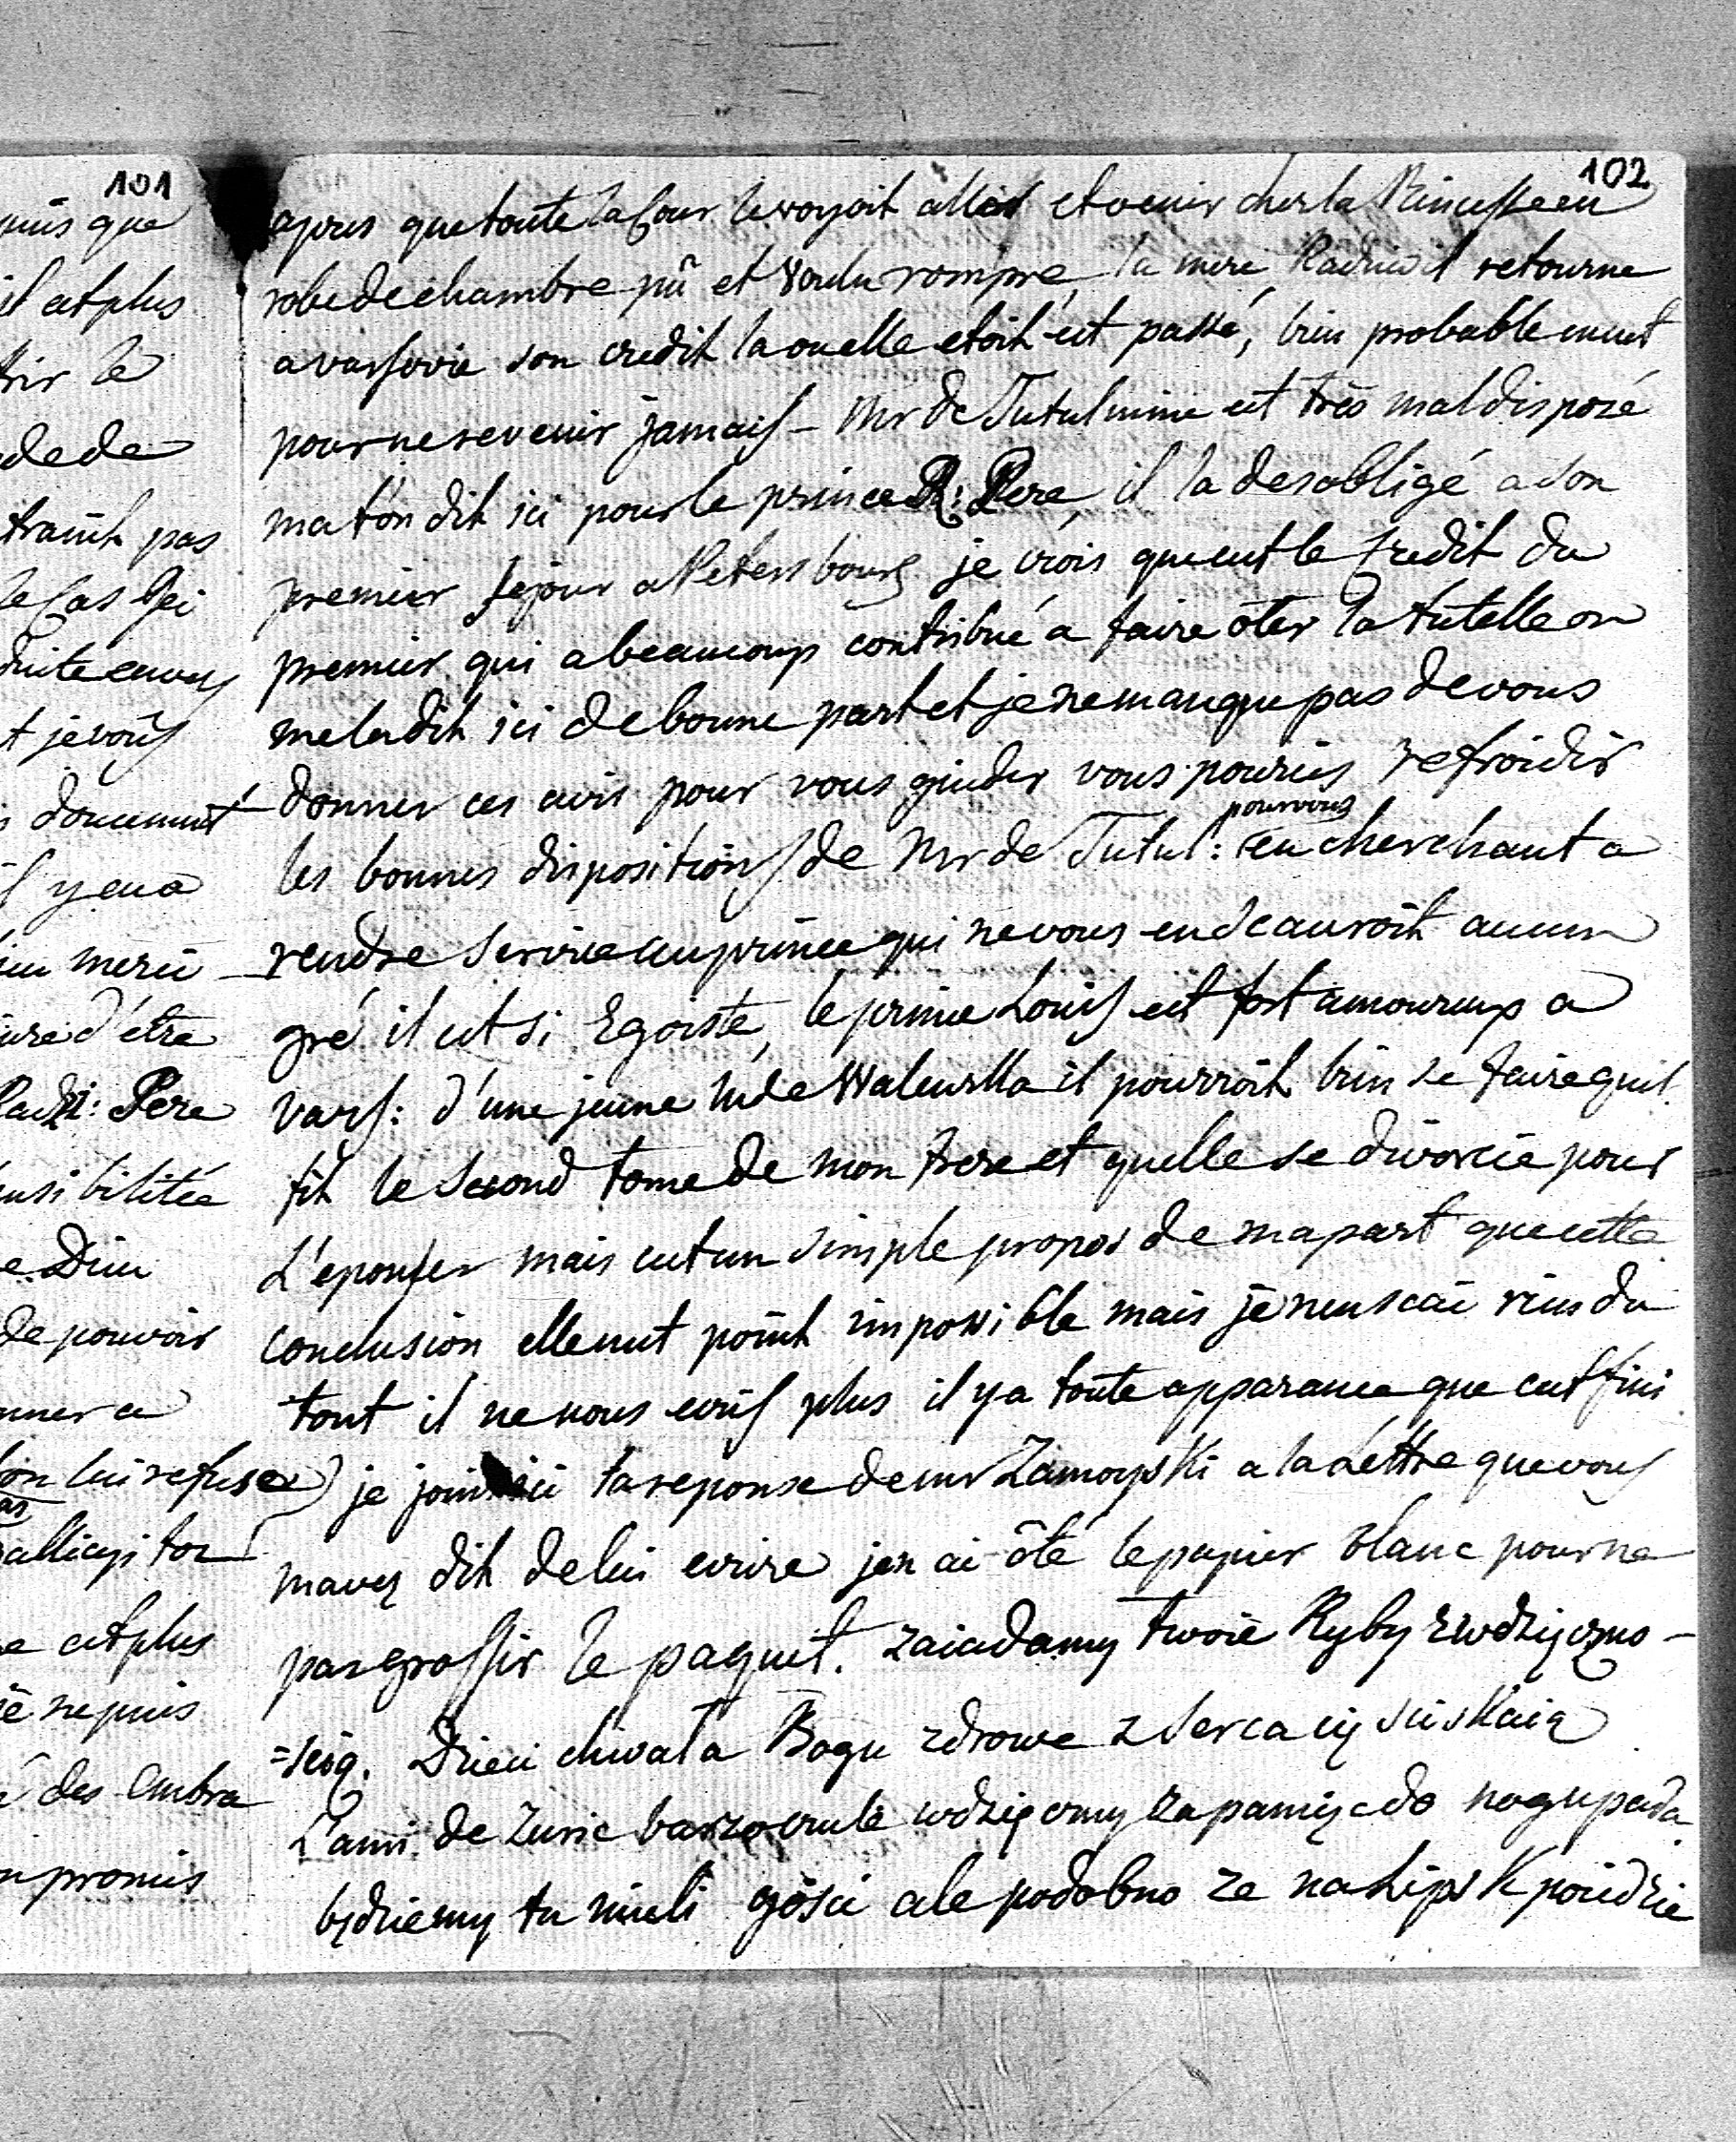 101
puis que
il est plus
rir le
de de
traint pas
le Cas Ici
duite envers
t je vous
s doucement
s y en a
bien merit
ure d'être
Radzi: Pere
ensibilitée
e Dieu
de pouvoir
nner a
lon lui refuse
as
allicyi tou
e est plus
je ne puis
é des Embra
n promis
102
apres que toute la Cour le voyoit aller et venir chez la Princesse en
robe de chambre pû et voulu rompre, la mere Radziwil retourne
a varsovie son credit la ou elle etoit est passé, bien probablement
pour ne revenir jamais - Mr de Tutulmine est très mal disposé
ma t'on dit ici pour le prince R: Pere, il la desobligé a son
premier sejour a Petersbourg je crois que c'est le Credit du
premier qui a beaucoup contribué a faire ôter la tutelle on
me la dit ici de bonne part et je ne manque pas de vous
donner ces avis pour vous guider vous pouriés refroidir
pour vous
les bonnes dispositions de Mr de Tutul: en cherchant a
rendre service au prince qui ne vous en scauroit aucun
gré il est si Egoiste, le prince Louis est fort amoureux a
vars: d'une jeune Mde Walewska il pourroit bien se faire quil
fit le second tome de mon frere et quelle se divorcie pour
L'epouser mais c'est un simple propos de ma part que cette
conclusion elle n'est point impossible mais je n'en scai rien du
tout il ne nous ecris plus il y a toute apparance que c'est fini
je joins ici la reponse de mr Zamoyski a la Lettre que vous
mavez dit de lui ecrire jen ai ôté le papier blanc pour ne
pas grossir le paquet. zaiadamy twoie Ryby z wdzięczno-
=scią. Dzieci chwała Bogu zdrowe z serca cię sciskaią
L'ami de Zuric barzo czule wdzięczny za pamięc do nog upada
będziemy tu mieli gosci ale podobno ze na Lipsk poidzie